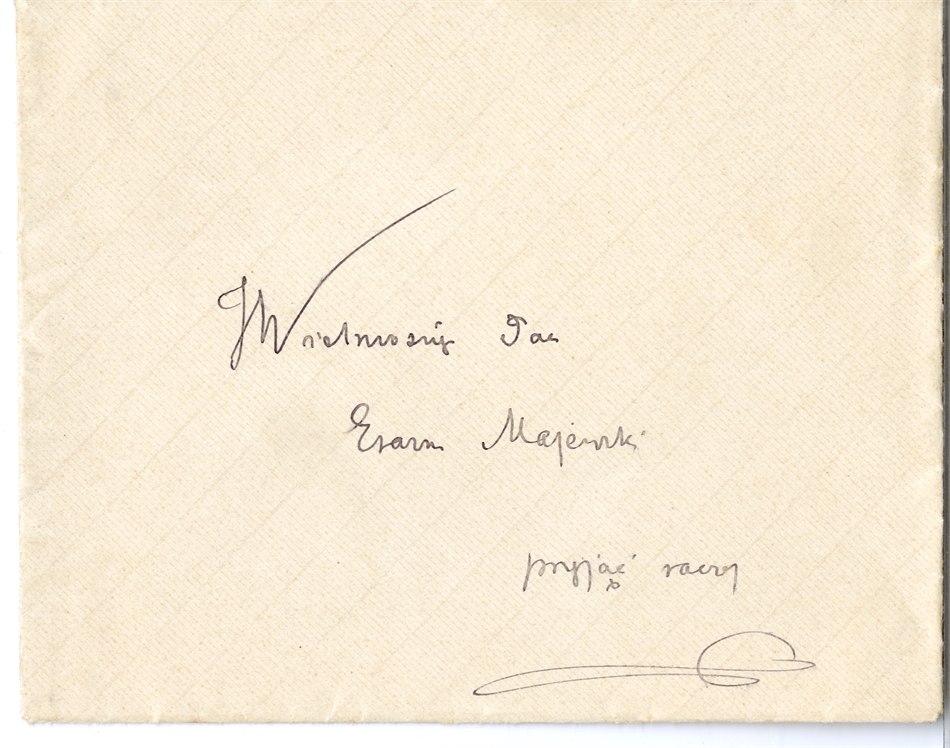 JWielmożny Pan
Erazm Majewski
przyjąć raczy